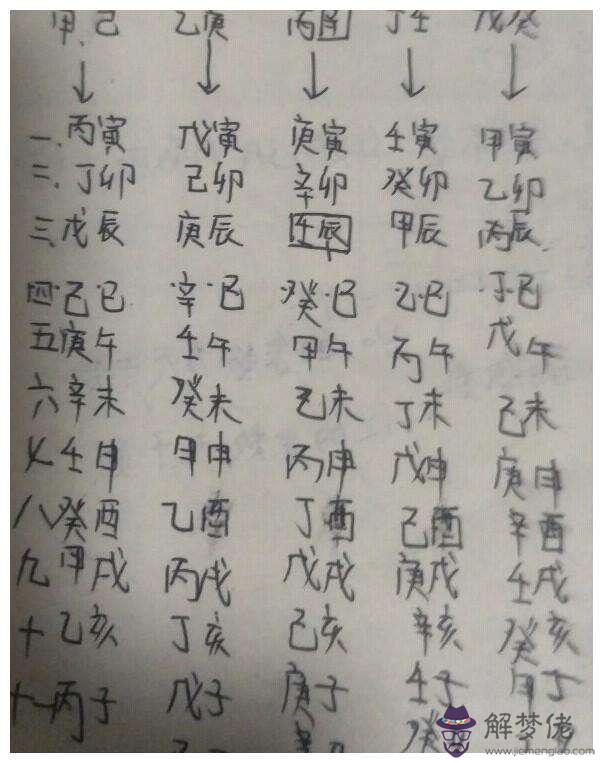 甲己 乙庚 丙 丁壬 戊癸
↓ ↓ ↓ ↓ ↓
一.丙寅 戊寅 庚寅 壬寅 甲寅
二.丁卯 己卯 辛卯 癸卯 乙卯
三.戊辰 庚辰 壬辰 甲辰 丙辰
四·己·巳 辛·巳 癸·巳 乙·巳 丁·巳
五庚午 壬午 甲午 丙午 戊午
六辛未 癸未 乙未 丁未 己未
七壬申 甲申 丙申 戊申 庚申
八癸酉 乙酉 丁酉 己酉 辛酉
九甲戌 丙戌 戊戌 庚戌 壬戌
十乙亥 丁亥 己亥 辛亥 癸亥
十一丙子 戊子 庚子 壬子 甲子
癸
解梦佬
www.jiemenglao.com